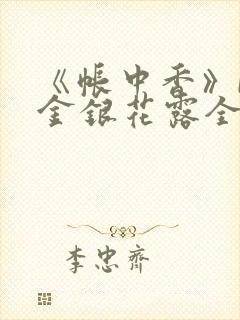 《帳中香》
金銀花露全
李忠齊